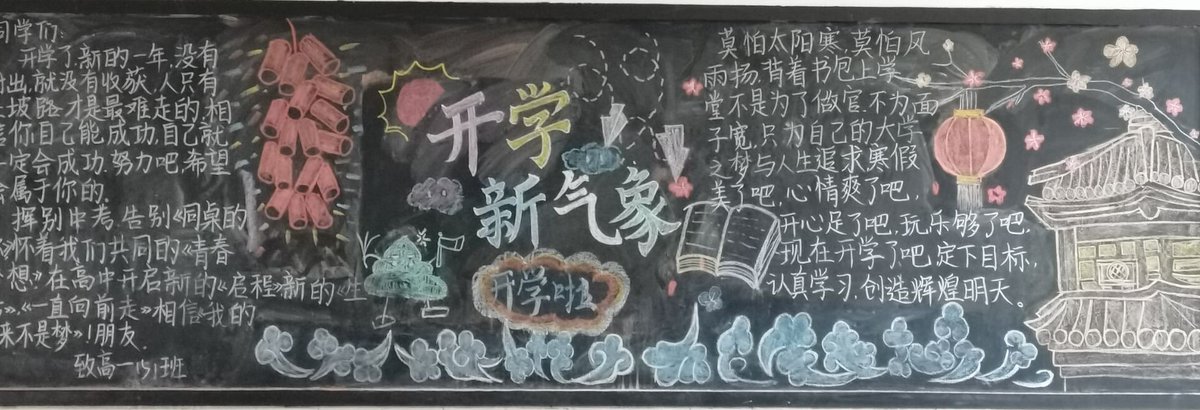 同学们:
开学了,新的一年,没有
付出,就没有收获,人只有
上坡路才是最难走的,相
信你自己能,成功,自己就
一定会成功.努力吧,希望
会属于你的.
挥别中考,告别《同桌的
》怀着我们共同的《青春
想》在高中开启新的《启程》新的《生
》,《一直向前走》相信《我的
来不是梦》!朋友.
致高一151班
开学
新气象
开学啦
莫怕太阳寒,莫怕风
雨扬,背着书包上学
堂,不是为了做官,不为面
子宽,只为自己的大学
之梦与人生追求寒假
美了吧,心情爽了吧,
开心足了吧,玩乐够了吧,
现在开学了吧,定下目标,
认真学习,创造辉煌明天。